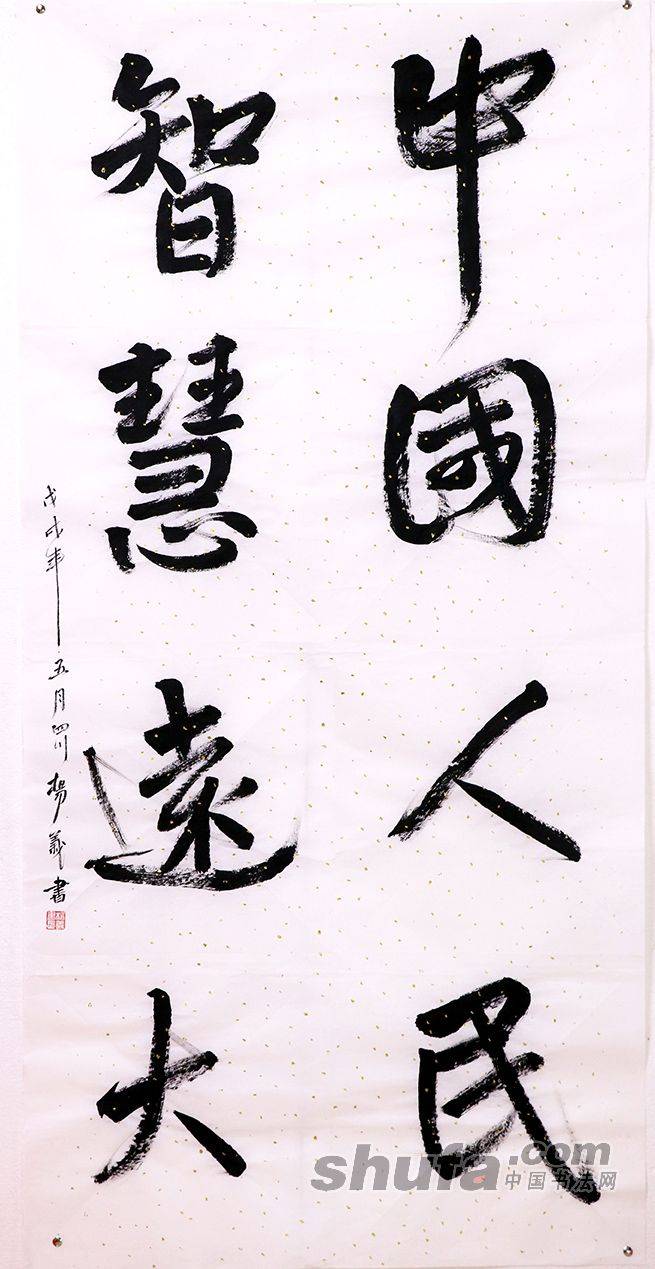 中國人民
智慧遠大
戊戌年五月四川楊義書
shufa.com
中国书法网